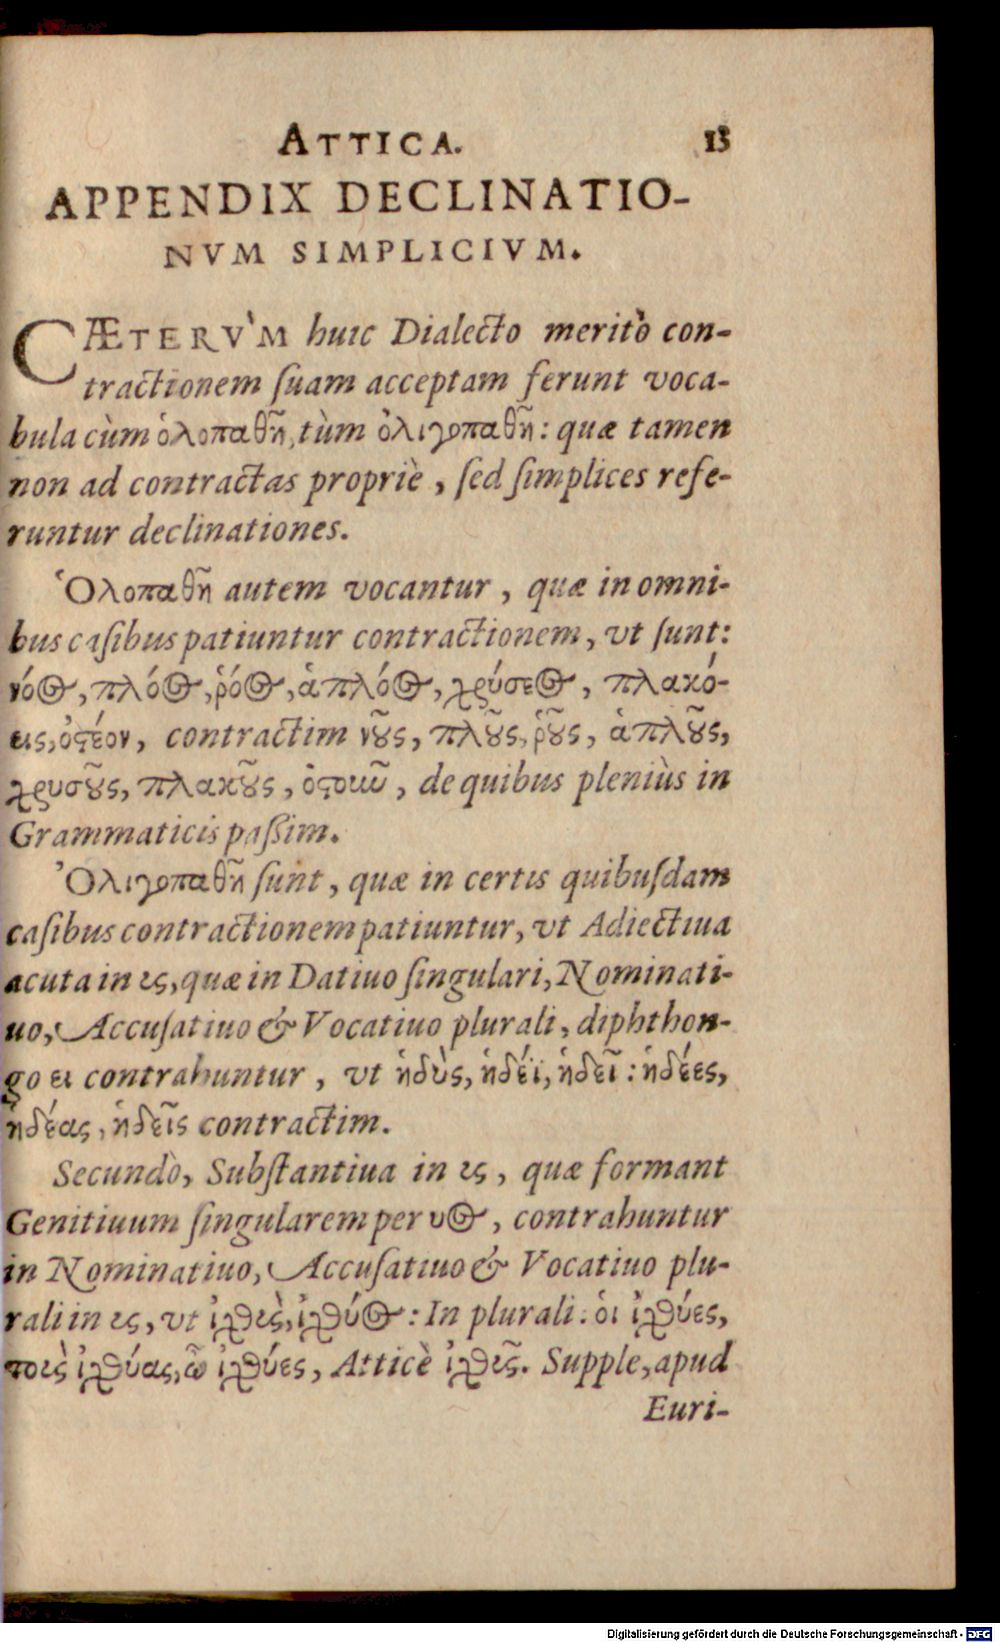 ATTICA. 13
APPENDIX DECLINATIO-
NVM SIMPLICIVM.
CÆTERV̀M huic Dialecto meritò con-
tractionem ſuam acceptam ferunt voca-
bula cùm ὁλοπαθῆ, tùm ὀλιγοπαθῆ: quæ tamen
non ad contractas propriè, ſed ſimplices refe-
runtur declinationes.
Ὁλοπαθῆ autem vocantur, quæ in omni-
bus caſibus patiuntur contractionem, vt ſunt:
νόος, πλόος, ῥόος, ἁπλόος, χρύσεος, πλακό-
εις, ὀστέον, contractim νοῦς, πλοῦς, ῥοῦς, ἁπλοῦς,
χρυσοῦς, πλακοῦς, de quibus pleniùs in
Grammaticis paßim.
Ὀλιγοπαθῆ ſunt, quæ in certis quibuſdam
caſibus contractionem patiuntur, vt Adiectiua
acuta in υς, quæ in Datiuo ſingulari, Nominati-
uo, Accuſatiuo & Vocatiuo plurali, diphthon-
go ει contrahuntur, vt ἡδὺς, ἡδέϊ, ἡδεῖ: ἡδέες,
ἡδέας, ἡδεῖς contractim.
Secundò, Subſtantiua in υς, quæ formant
Genitiuum ſingularem per υος, contrahuntur
in Nominatiuo, Accuſatiuo & Vocatiuo plu-
rali in υς, vt ἰχθὺς, ἰχθύος: In plurali: οἱ ἰχθύες,
τοὺς ἰχθύας, ὦ ἰχθύες, Atticè ἰχθῦς. Supple, apud
Euri-
Digitalisierung gefördert durch die Deutsche Forschungsgemeinschaft - DFG